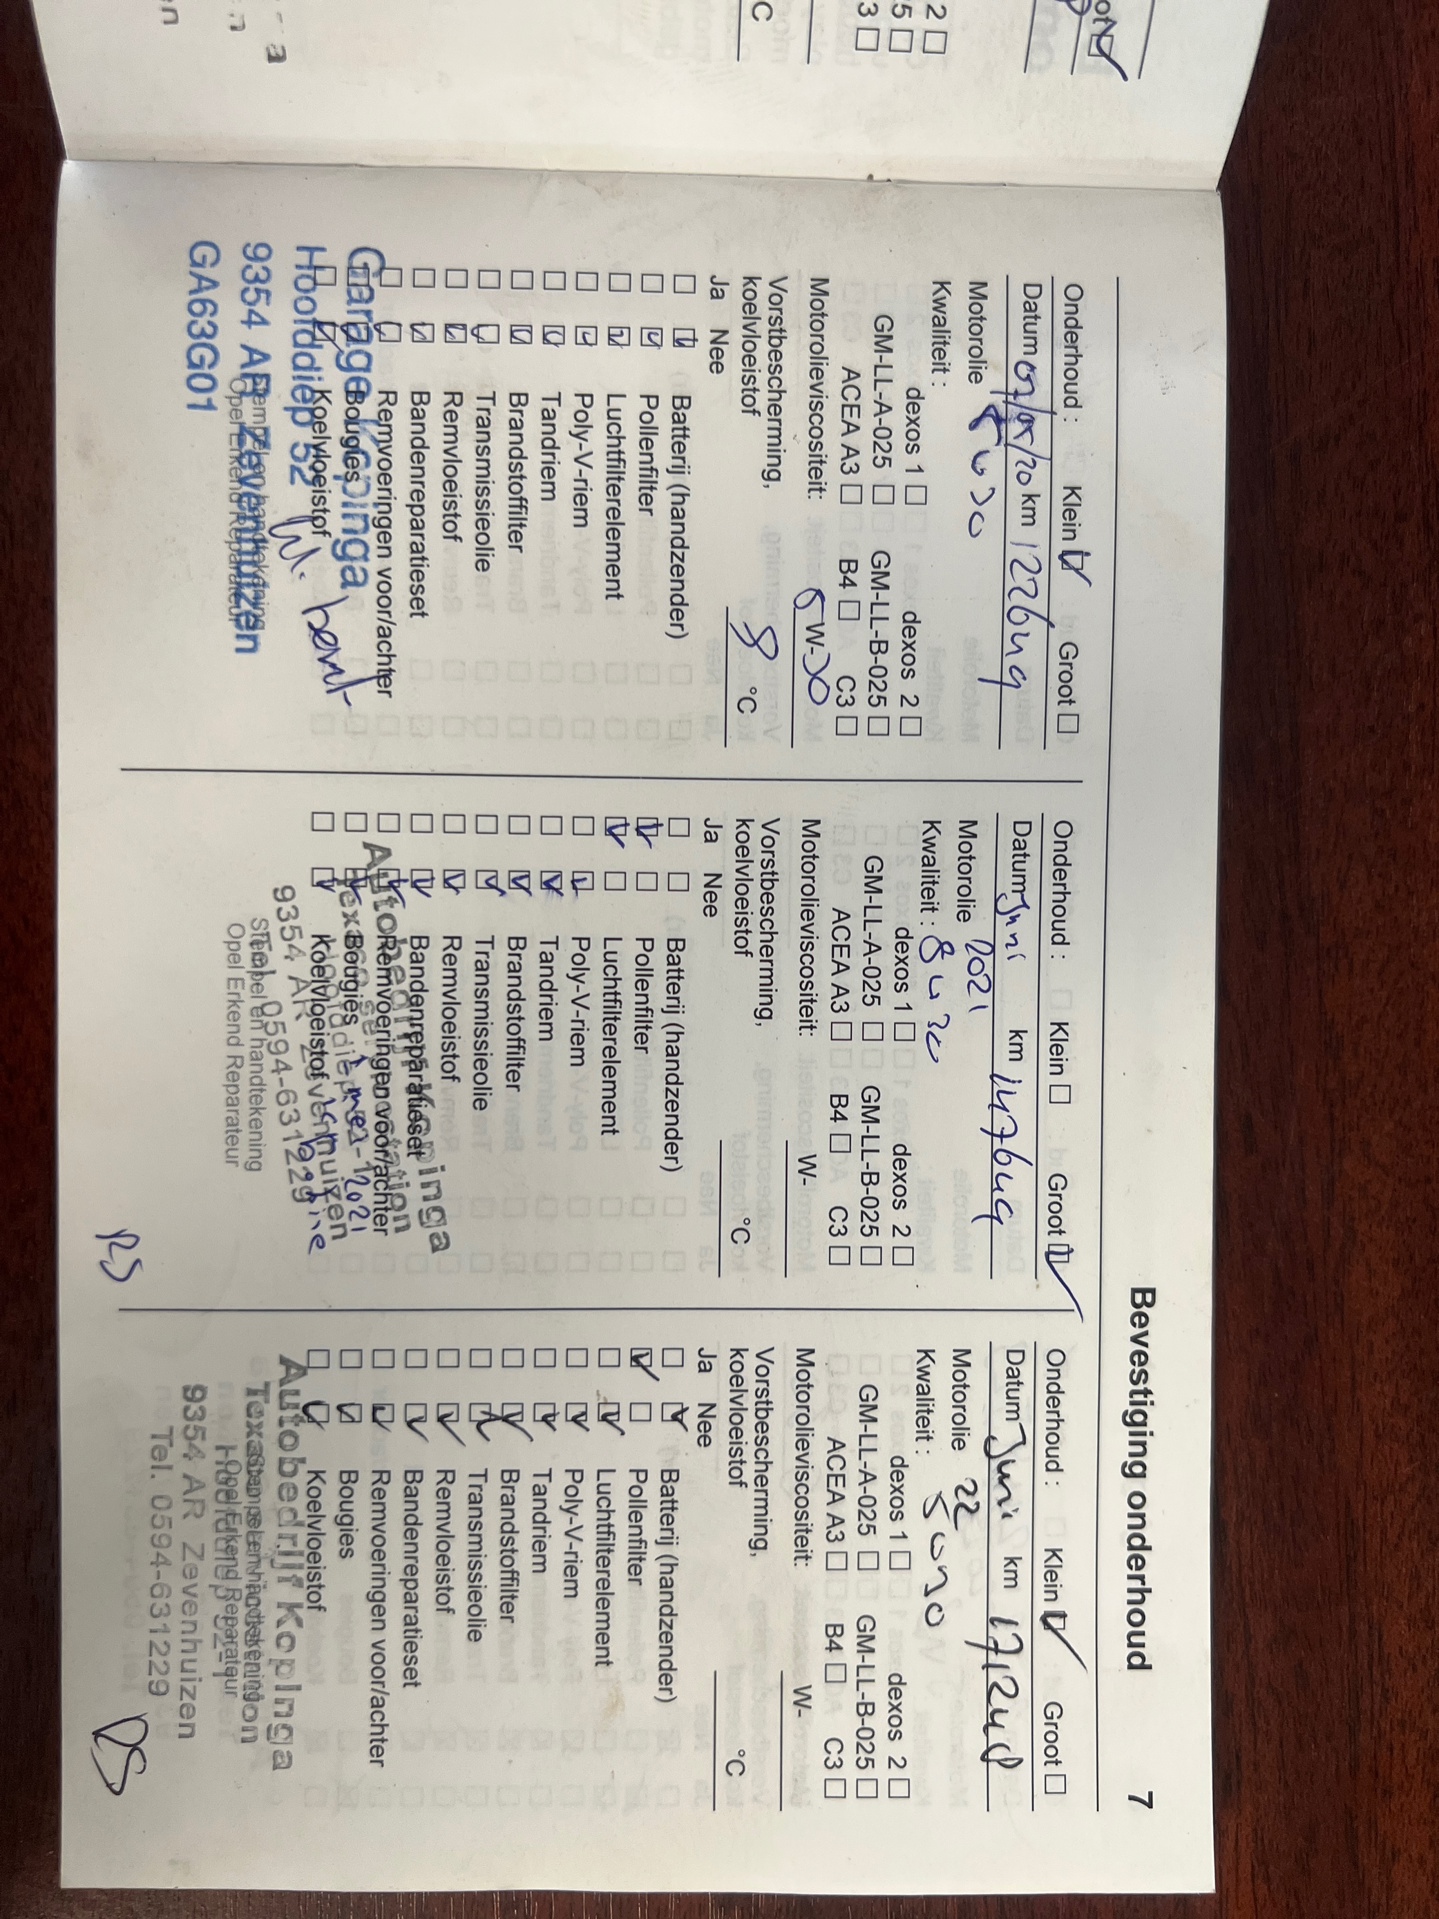 Bevestiging onderhoud 7
Onderhoud : Klein Groot
Datum km 122649
Motorolie
Kwaliteit :
dexos 1 dexos 2
GM-LL-A-025 GM-LL-B-025
ACEA A3 B4 C3
Motorolieviscositeit: 5 W-30
Vorstbescherming,
koelvloeistof °C
Ja Nee
Batterij (handzender)
Pollenfilter
Luchtfilterelement
Poly-V-riem
Tandriem
Brandstoffilter
Transmissieolie
Remvloeistof
Bandenreparatieset
Remvoeringen voor/achter
Bougies
Koelvloeistof
Garage Kopinga
Hoofddiep 52
9354 AR Zevenhuizen
GA63G01
Stempel en handtekening
Opel Erkend Reparateur
Onderhoud : Klein Groot
Datum Juni km 147649
Motorolie 2021
Kwaliteit :
dexos 1 dexos 2
GM-LL-A-025 GM-LL-B-025
ACEA A3 B4 C3
Motorolieviscositeit: W-
Vorstbescherming,
koelvloeistof °C
Ja Nee
Batterij (handzender)
Pollenfilter
Luchtfilterelement
Poly-V-riem
Tandriem
Brandstoffilter
Transmissieolie
Remvloeistof
Bandenreparatieset
Remvoeringen voor/achter
Bougies
Koelvloeistof
Autobedrijf Kopinga
9354 AR Zevenhuizen
Tel. 0594-631229
Stempel en handtekening
Opel Erkend Reparateur
Onderhoud : Klein Groot
Datum Juni km 171248
Motorolie 22
Kwaliteit : 5w30
dexos 1 dexos 2
GM-LL-A-025 GM-LL-B-025
ACEA A3 B4 C3
Motorolieviscositeit: W-
Vorstbescherming,
koelvloeistof °C
Ja Nee
Batterij (handzender)
Pollenfilter
Luchtfilterelement
Poly-V-riem
Tandriem
Brandstoffilter
Transmissieolie
Remvloeistof
Bandenreparatieset
Remvoeringen voor/achter
Bougies
Koelvloeistof
Autobedrijf Kopinga
Stempel en handtekening
Opel Erkend Reparateur
9354 AR Zevenhuizen
Tel. 0594-631229